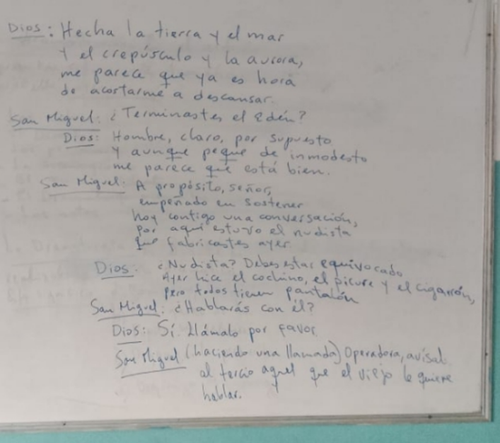 Dios: Hecha la tierra y el mar
Y el crepúsculo y la aurora,
me parece que ya es hora
de acostarme a descansar.
San Miguel: ¿Terminastes el Edén?
Dios: Hombre, claro, por supuesto
Y aunque peque de inmodesto
me parece que está bien.
San Miguel: A propósito, señor,
empeñado en sostener
hoy contigo una conversación,
por aquí estuvo el nudista
que fabricastes ayer
Dios: ¿Nudista? Debes estar equivocado
Ayer hice el cochino, el picure y el cigarrón,
pero todos tienen pantalón
San Miguel: ¿Hablarás con él?
Dios: Sí. Llámalo por favor
San Miguel (haciendo una llamada) Operadora, avísale
al tercio aquel que el viejo le quiere
hablar.